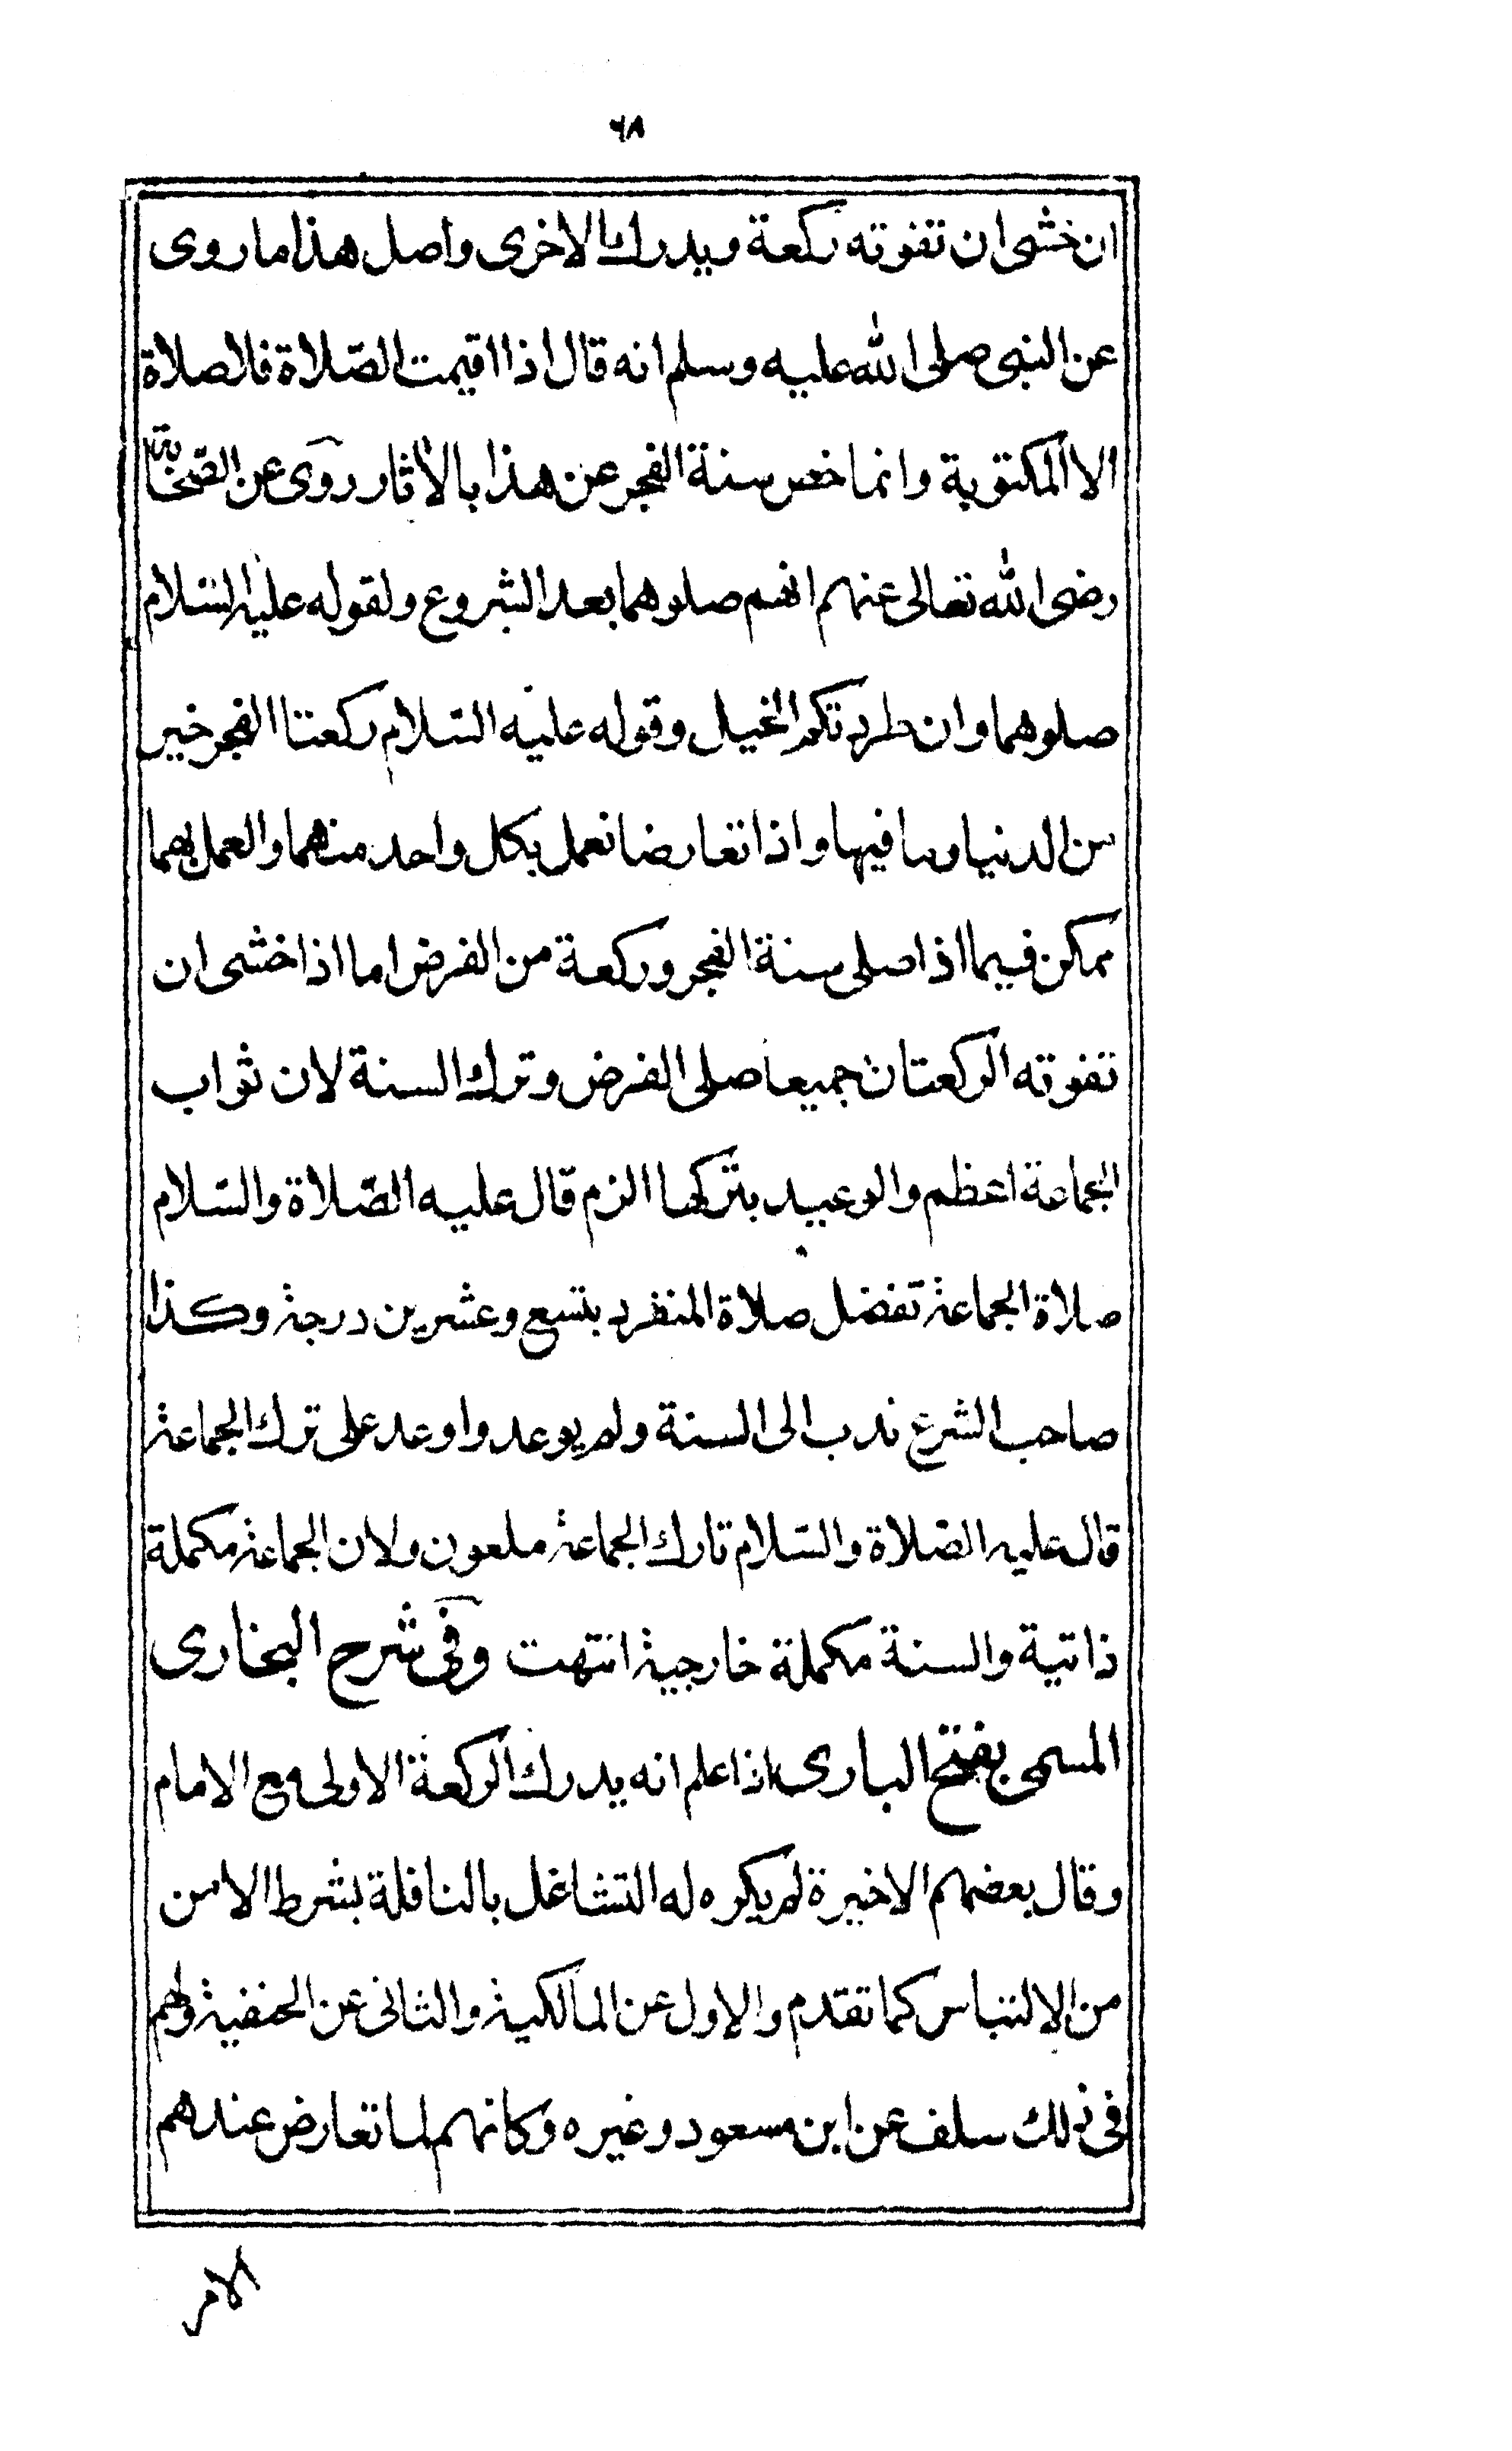 ٦٨
ان خشى ان تفوته ركعة ويدرك الاخرى واصل هذا ما روى
عن النبى صلى الله عليه وسلم انه قال اذا اقيمت الصّلاة فلا صلاة
الا المكتوبة وانما خص سنة الفجر عن هذا بالأثار روى عن الصّحابة
رضى الله تعالى عنهم انهم صلوهما بعد الشروع ولقوله عليه السّلام
صلوهما وان طردتكم الخيل وقوله عليه السّلام ركعتا الفجر خير
من الدنيا وما فيها واذا تعارضا نعمل بكل واحد منهما والعمل بهما
ممكن فيما اذا صلى سنة الفجر وركعة من الفرض اما اذا خشى ان
تفوته الركعتان جميعا صلى الفرض وترك السنة لان ثواب
الجماعة اعظم والوعيد بتركها الزم قال عليه الصّلاة والسّلام
صلاة الجماعة تفضل صلاة المنفرد بتسع وعشرين درجة وكذا
صاحب الشرع ندب الى السنة ولم يوعد واوعد على ترك الجماعة
قال عليه الصّلاة والسّلام تارك الجماعة ملعون ولان الجماعة مكملة
ذاتية والسنة مكملة خارجية انتهت وفى شرح البخارى
المسمى بفتح البارى اذا علم انه يدرك الركعة الاولى مع الامام
وقال بعضهم الاخيرة لم يكره له التشاغل بالنافلة بشرط الامن
من الالتباس كما تقدم والاول عن المالكية والثانى عن الحنفية ولهم
فى ذلك سلف عن ابن مسعود وغيره وكانهم لما تعارض عندهم
الامر